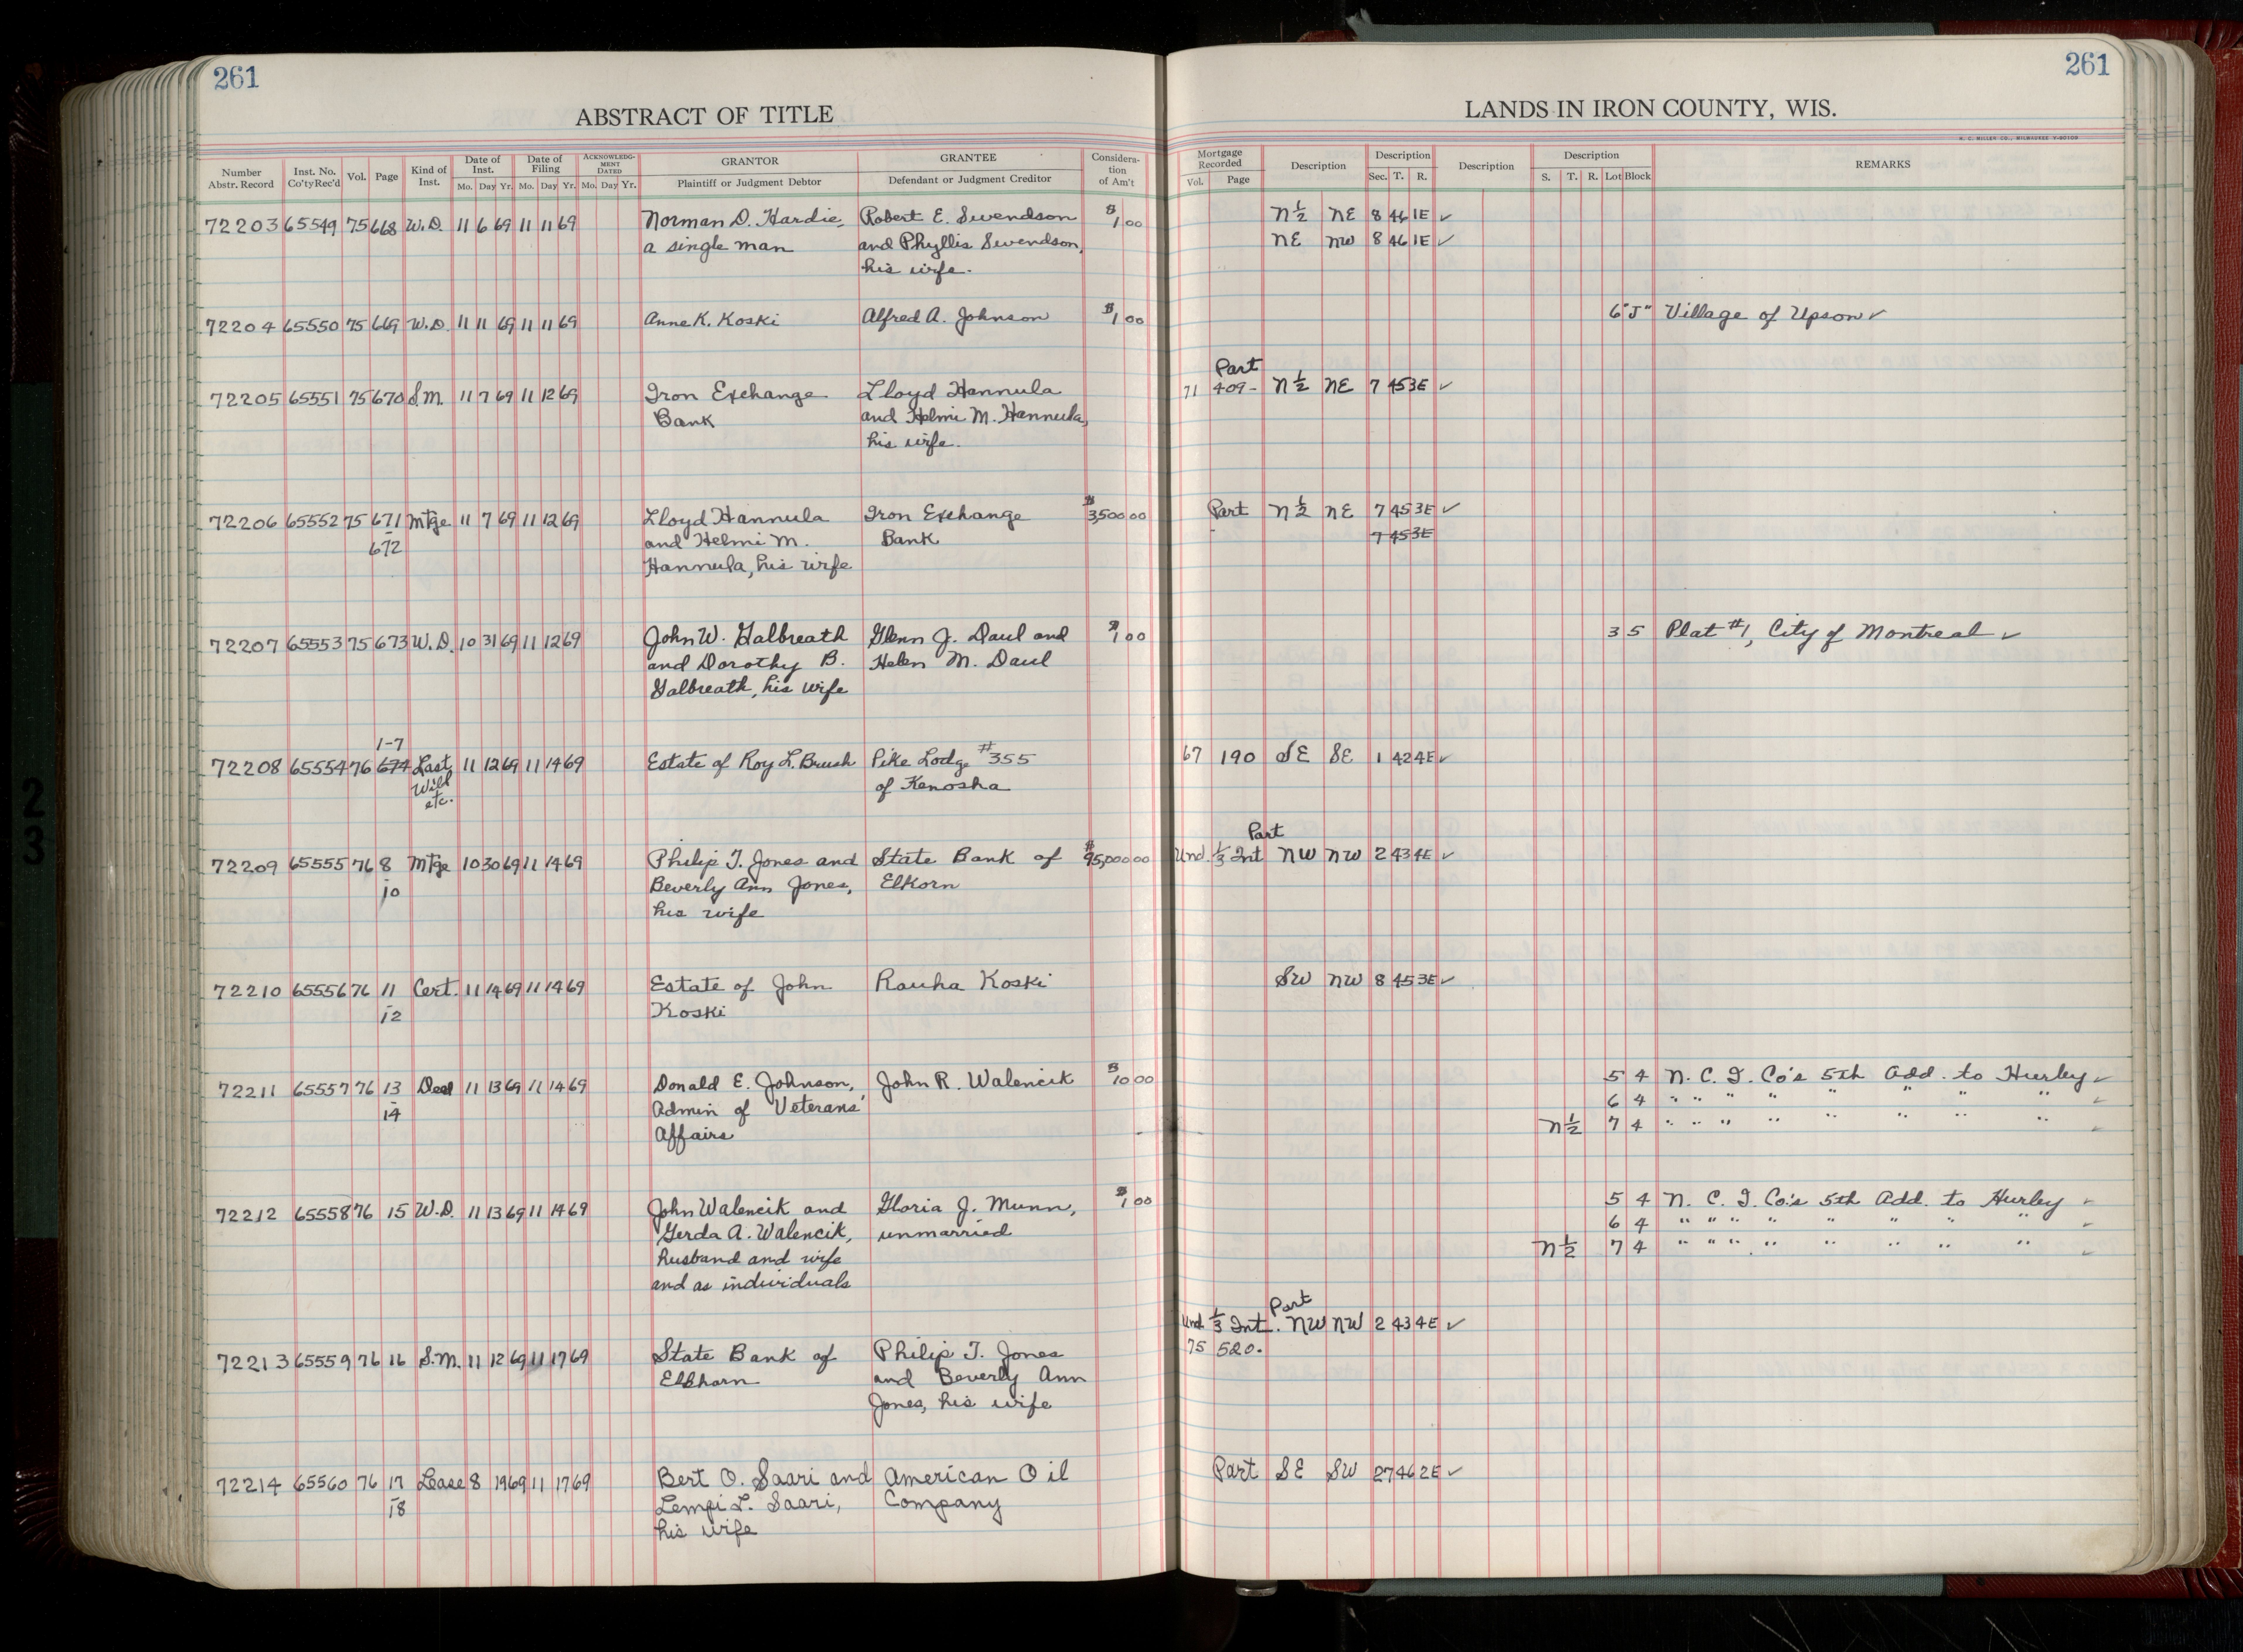 261
261
ABSTRACT OF TITLE
LANDS IN IRON COUNTY, WIS.
H. C. MILLER CO., MILWAUKEE
Number Abstr. Record Inst. No. Co'ty Rec'd Vol. Page Kind of Inst. Date of Inst. Mo. Day Yr. Date of Filing Mo. Day Yr. ACKNOWLEDGMENT DATED Mo. Day Yr. GRANTOR Plaintiff or Judgment Debtor GRANTEE Defendant or Judgment Creditor Consideration of Am't Mortgage Recorded Vol. Page Description Description Sec. T. R. Description Description S. T. R. Lot Block REMARKS
72203 65549 75 668 W.D. 11 6 69 11 11 69 Norman D. Hardie, Robert E. Swendson $1 00 N½ NE 8 46 1E ✓
a single man and Phyllis Swendson, NE NW 8 46 1E ✓
his wife.
72204 65550 75 669 W.D. 11 11 69 11 11 69 Anne K. Koski Alfred A. Johnson $1 00 6 "J" Village of Upson ✓
Part
72205 65551 75 670 S.M. 11 7 69 11 12 69 Iron Exchange Lloyd Hannula 71 409- N½ NE 7 45 3E ✓
Bank and Helmi M. Hannula,
his wife.
72206 65552 75 671 Mtge 11 7 69 11 12 69 Lloyd Hannula Iron Exchange $3,500 00 Part N½ NE 7 45 3E ✓
-672 and Helmi M. Bank 7 45 3E
Hannula, his wife
72207 65553 75 673 W.D. 10 31 69 11 12 69 John W. Galbreath Glenn J. Daul and $1 00 3 5 Plat #1, City of Montreal ✓
and Dorothy B. Helen M. Daul
Galbreath, his wife
1-7
72208 65554 76 674 Last 11 12 69 11 14 69 Estate of Roy L. Brush Pike Lodge #355 67 190 SE SE 1 42 4E ✓
Will of Kenosha
etc.
Part
72209 65555 76 8 Mtge 10 30 69 11 14 69 Philip T. Jones and State Bank of $95,000 00 Und. ⅓ Int NW NW 2 43 4E ✓
-10 Beverly Ann Jones, Elkorn
his wife
72210 65556 76 11 Cert. 11 14 69 11 14 69 Estate of John Rauha Koski SW NW 8 45 3E ✓
-12 Koski
72211 65557 76 13 Deed 11 13 69 11 14 69 Donald E. Johnson, John R. Walencik $10 00 5 4 N. C. I. Co's 5th Add. to Hurley ✓
-14 Admin of Veterans' 6 4 " " " " " " " " ✓
Affairs N½ 7 4 " " " " " " " " ✓
72212 65558 76 15 W.D. 11 13 69 11 14 69 John Walencik and Gloria J. Munn, $1 00 5 4 N. C. I. Co's 5th Add. to Hurley ✓
Gerda A. Walencik, unmarried 6 4 " " " " " " " " ✓
husband and wife N½ 7 4 " " " " " " " " ✓
and as individuals
Part
Und. ⅓ Int. NW NW 2 43 4E ✓
72213 65559 76 16 S.M. 11 12 69 11 17 69 State Bank of Philip T. Jones 75 520.
Elkhorn and Beverly Ann
Jones, his wife
72214 65560 76 17 Lease 8 19 69 11 17 69 Bert O. Saari and American Oil Part SE SW 27 46 2E ✓
-18 Lempi L. Saari, Company
his wife
2
3